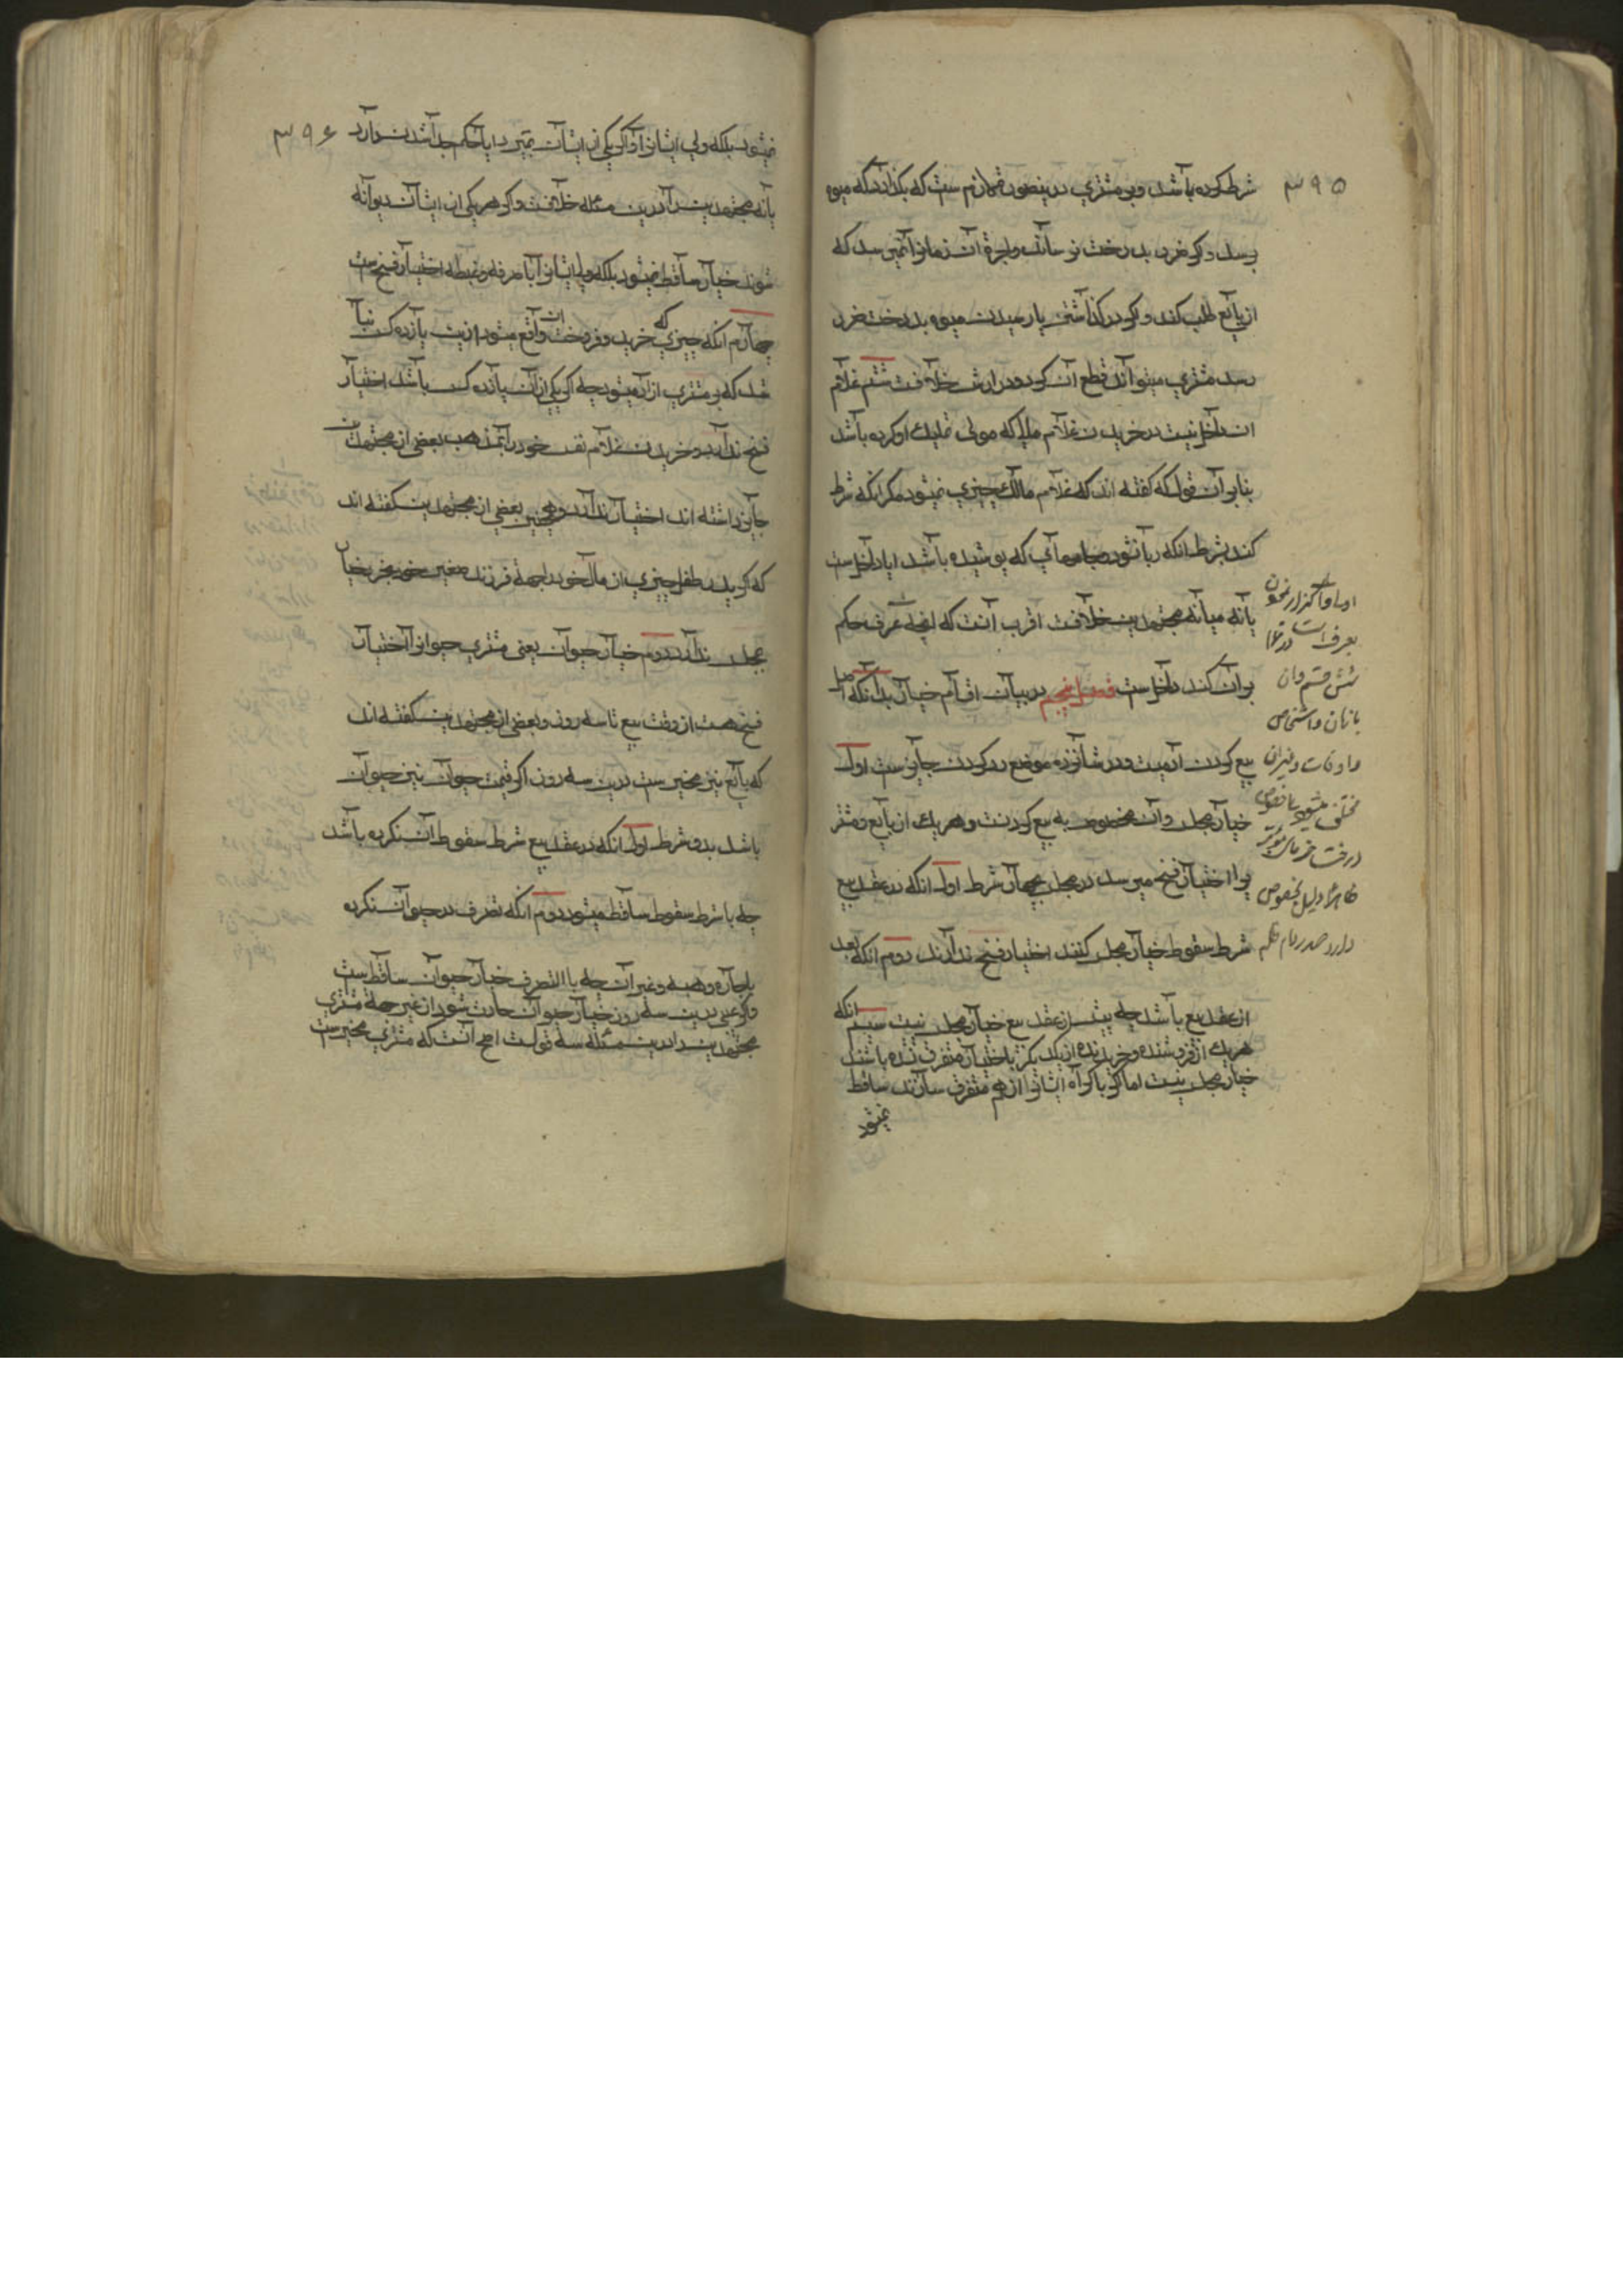 ۳۹۵
شرط کرده باشد و بر مشتری درینصورت لازم ست که بکذارد که میوه
برسد و اکر ضرر بدرخت نرساند و اجرة آن زمان را نمیرسد که
از بایع طلب کند و اکر در کذاشتن تا رسیدن میوه بدرخت ضرر
رسد مشتری میتواند قطع آن کرد و در ارش خلافست ششم غلام
ان داخل نیست در خریدن غلام مالی که مولی تملیك او کرده باشد
بنا بر آن قول که کفته اند که غلام مالك چیزی نمیشود مکر آنکه شرط
کند بشرط آنکه ربا نشود جامهای که پوشیده باشد ایا داخلست
یا نه میانه مجتهدین خلافست اقرب آنست که آنچه عرف حکم
بر آن کند داخلست فصل پنجم در بیان اقسام خیار بدانکه اصل
بیع کردن آدمیست و در شانزده موضع رد کردن جایز ست اول
خیار مجلس و آن مخصوص به بیع کردنست و هر یك از بایع و مشتر
یرا اختیار فسخ میرسد در مجلس بچهار شرط اول آنکه در عقد بیع
شرط سقوط خیار مجلس کنند اختیار فسخ ندارند دوم آنکه بعد
از عقد بیع باشد چه پیش از عقد بیع خیار مجلس نیست سیم آنکه
هر یك از فروشنده و خریدنده از یکدیکر باختیار متفرق نشده باشند
خیار مجلس نیست اما اکر باکراه ایشانرا از هم متفرق سازند ساقط
نمیشود
بعرف است
شش قسم وان
بازمان و اشخاص
و اوقات و غیران
مختلف میشود
۳۹۶
نمیشود بلکه ولی ایشانرا و اکر یکی از ایشان بمیرد ایا حکم جدا شدن دارد
یا نه مجتهدین را درین مسئله خلافست و اکر هر یکی از ایشان دیوانه
شوند خیار ساقط نمیشود بلکه ولی ایشانرا با صرفه و غبطه اختیار فسخست
چهارم آنکه چیزی که خرید و فروخت ان واقع میشود از پانزده کس نبا
شد که بر مشتری ازاد میشود چه اکر یکی از آن پانزده کس باشد اختیار
فسخ ندارد و خریدن غلام نفس خود را بمذهب بعضی از مجتهدین
جایز داشته اند اختیار ندارد و همچنین بعضی از مجتهدین کفته اند
که اکر پدر طفل چیزی از مال خود بجهة فرزند صغیر خود بخرد خیار
مجلس ندارد دوم خیار حیوان یعنی مشتری حیوانرا اختیار
فسخ هست از وقت بیع تا سه روز و بعضی از مجتهدین کفته اند
که بایع نیز مخیر ست درین سه روز اکر قیمت حیوان نیز حیوان
باشد بدو شرط اول آنکه در عقد بیع شرط سقوط آن نکرده باشد
چه با شرط سقوط ساقط میشود دوم آنکه تصرف در حیوان نکرده
باجاره و هبه و غیر آن چه با التصرف خیار حیوان ساقطست
و اکر عیبی درین سه روز خیار حیوان حادث شود از غیر جهة مشتری
مجتهدین را درین مسئله سه قولست اصح آنست که مشتری مخیر ست